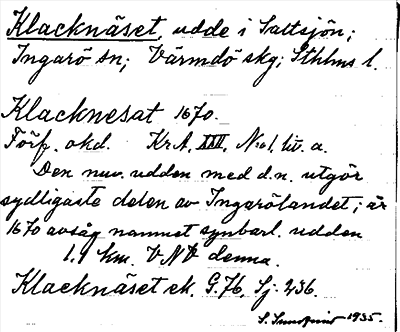 Klacknäset, udde i Saltsjön;
Ingarö sn; Värmdö skg; Sthlms l.
Klacknesat 1670.
Förf. okd. KrA. XXV. No 1. lit. a.
Den nuv. udden med d.n. utgör
sydligaste delen av Ingarölandet; år
1670 avsåg namnet synbarl. udden
1.1 km. VNV denna.
Klacknäset ek. G.76, Sj. 236.
S. 1935.